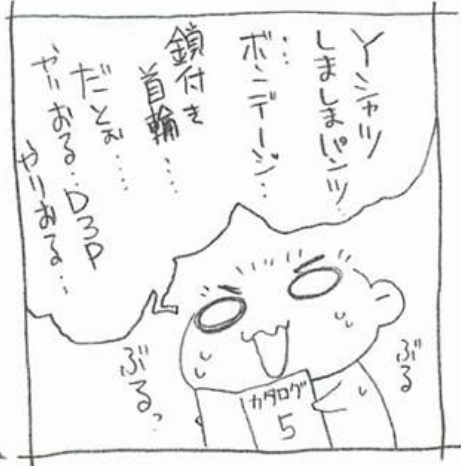 Yシャツ
しましまパンツ…
…ボンデージ…
鎖付き
首輪……
だとぉ……
やりおる…D3P
やりおる…
ぶる
ぶるっ
カタログ
5